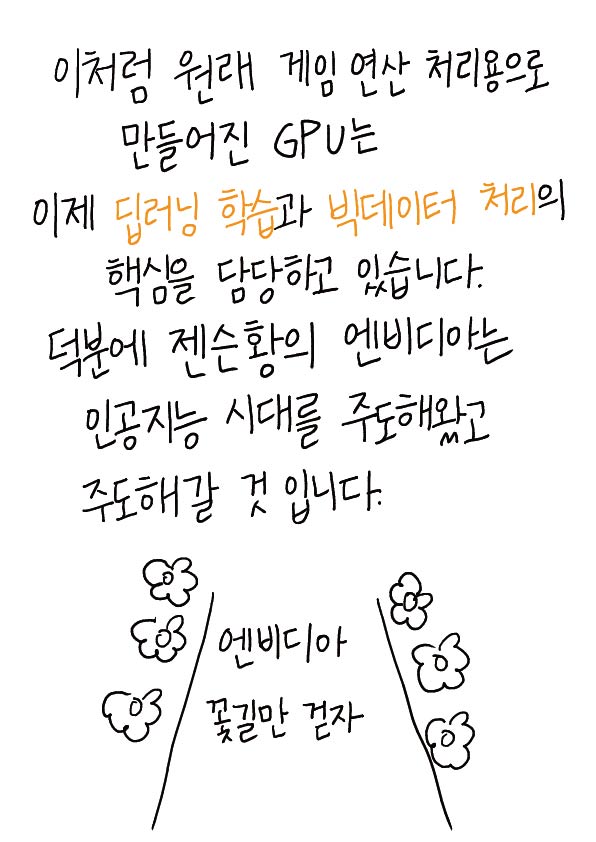 이처럼 원래 게임 연산 처리용으로
만들어진 GPU는
이제 딥러닝 학습과 빅데이터 처리의
핵심을 담당하고 있습니다.
덕분에 젠슨황의 엔비디아는
인공지능 시대를 주도해왔고
주도해갈 것 입니다.
엔비디아
꽃길만 걷자